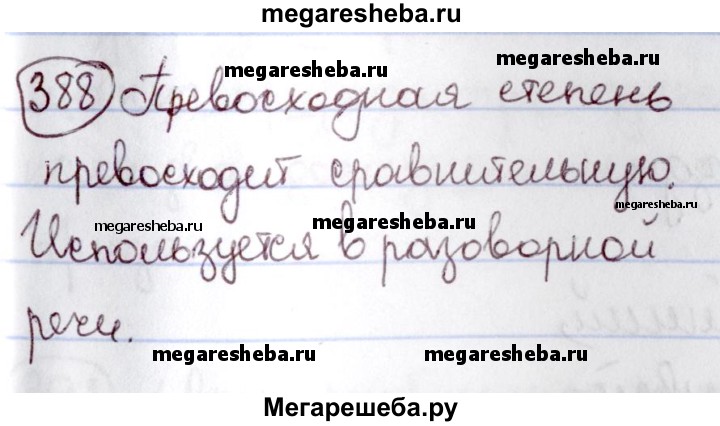 megaresheba.ru
388 Превосходная степень
megaresheba.ru megaresheba.ru
превосходит сравнительную.
megaresheba.ru megaresheba.ru megaresheba.ru
Используется в разговорной
речи.
megaresheba.ru megaresheba.ru
Мегарешеба.ру